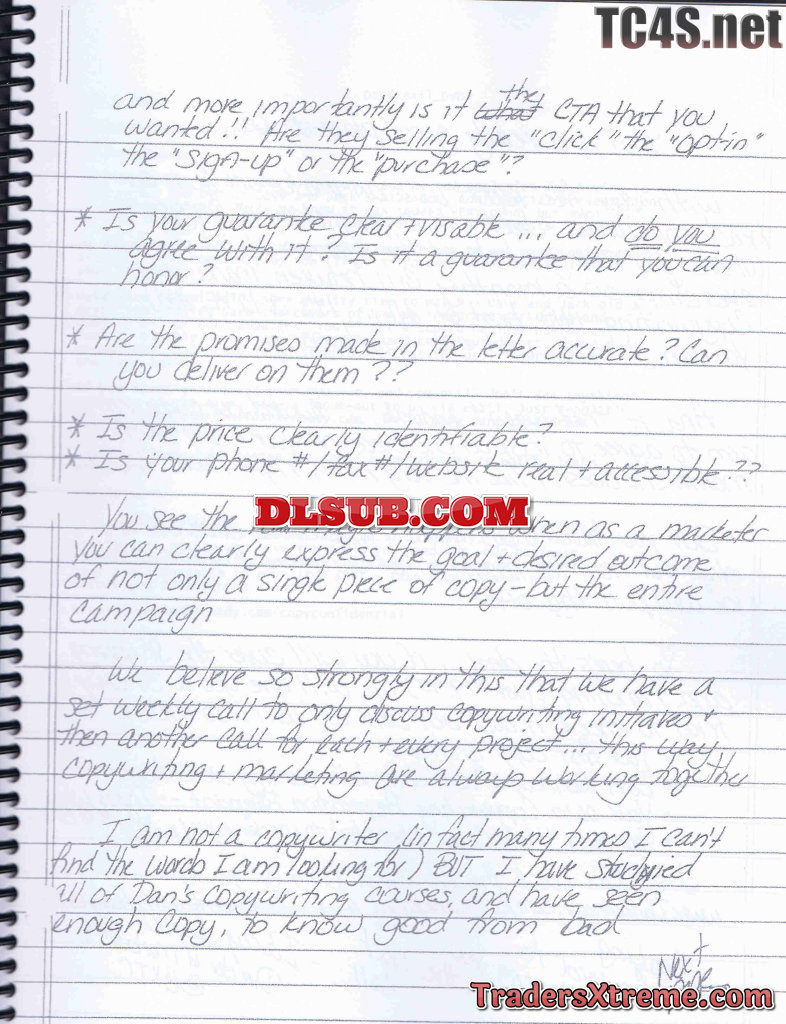 TC4S.net
and more importantly is it what the CTA that you
wanted!! Are they selling the "click" the "opt-in"
the "sign-up" or the "purchase"?
* Is your guarantee clear + visable ... and do you
agree with it? Is it a guarantee that you can
honor?
* Are the promises made in the letter accurate? Can
you deliver on them??
* Is the price clearly identifiable?
* Is your phone #/fax #/website real + accessible??
DLSUB.COM
You see the when as a marketer
you can clearly express the goal + desired outcome
of not only a single piece of copy - but the entire
campaign
We believe so strongly in this that we have a
set weekly call to only discuss copywriting +
then another call for each + every project... this way
copywriting + marketing are always working together
I am not a copywriter (in fact many times I can't
find the words I am looking for) BUT I have studied
all of Dan's copywriting courses, and have seen
enough copy, to know good from bad
Next
TradersXtreme.com